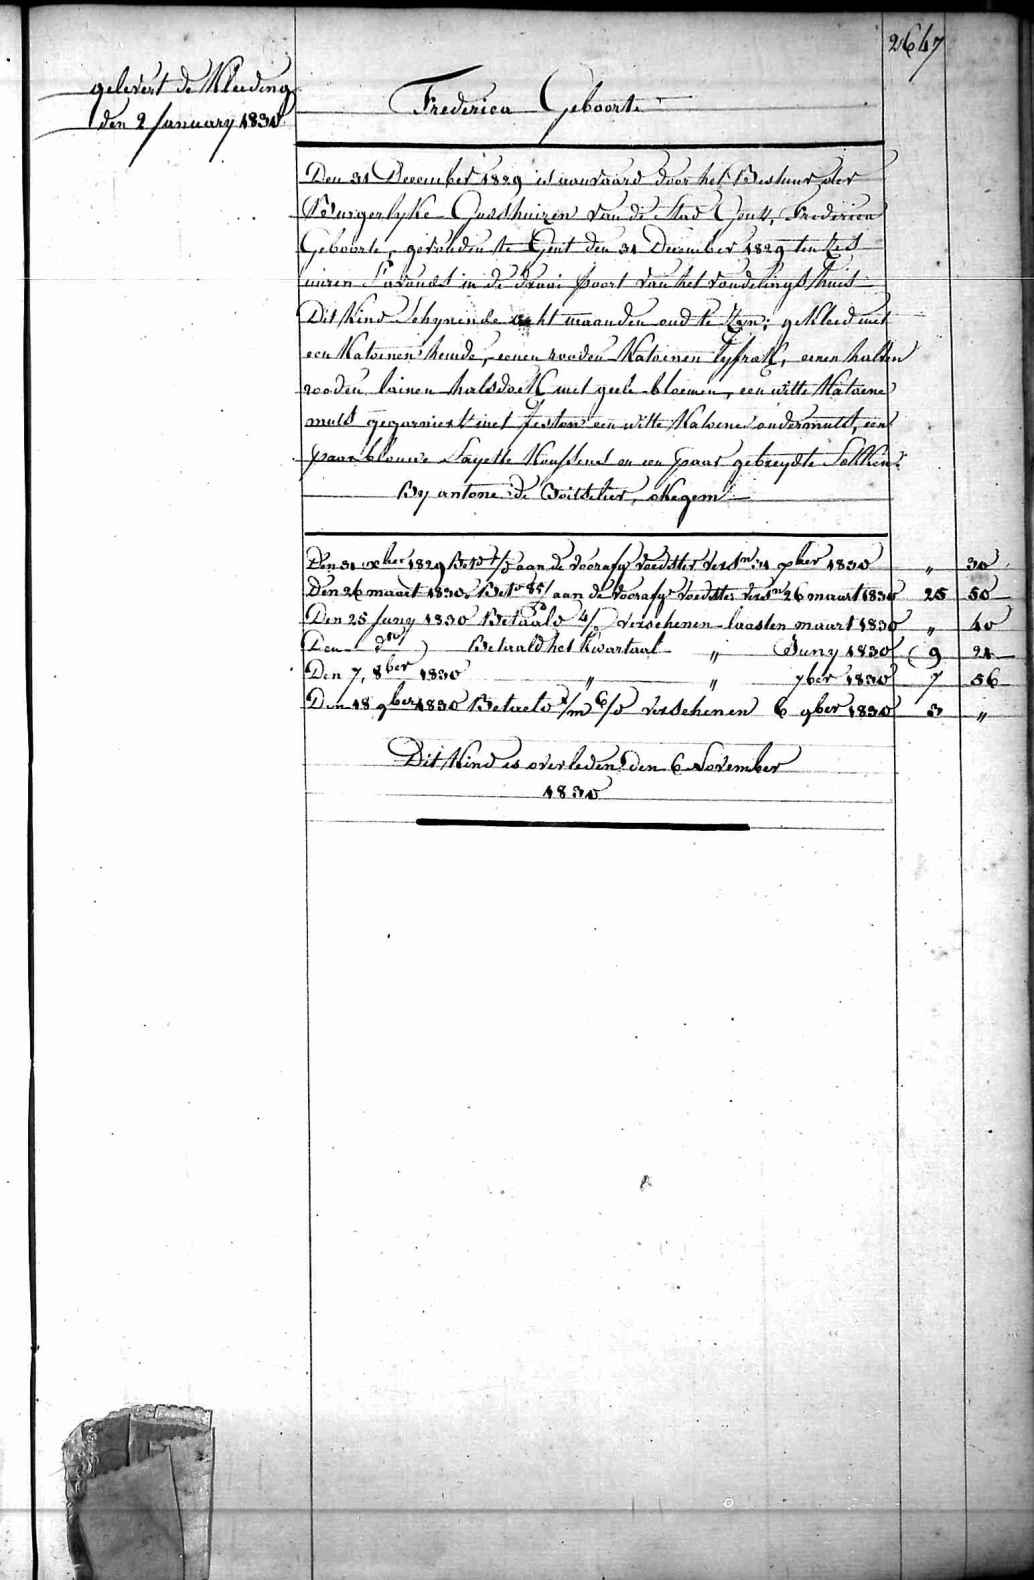 2647
gelevert de Kleeding
den 2 January 1830
Frederica Geboorte
Den 31 December 1829 is aanvaard door het Bestuur der
Burgerlyke Godshuizen van de Stad Gent, Frederica
Geboorte, gevonden te Gent den 31 December 1829 ten zes
uuren s'avonds in de draai poort van het vondelingshuis
Dit Kind schynende acht maanden oud te zyn; gekleed met
een Katoenen hemde, eenen rooden Katoenen lyfrok, eenen halven
rooden lainen halsdoek met geele bloemen, een witte Katoene
muts gegarniert met feston een witte Katoene ondermuts, een
paar blouwe Sayette Koussens en een paar gebreydte Sokken
By antone de, okegem
Den 31 xber 1829 Bet aan de voorafg voedster vers 31 xber 1830 " 30
Den 26 maart 1830 Bet aan de voorafg voedster vers 26 maart 1830 25 50
Den 25 Juny 1830 Betaald 4/ verschenen laasten maart 1830 " 40
Den dto Betaald het Kwartaal " Juny 1830 9 24
Den 7, 8ber 1830 " " 7ber 1830 7 56
Den 18 9ber 1830 Betaeld verschenen 6 9ber 1830 3 "
Dit Kind is overleden den 6 November
1830